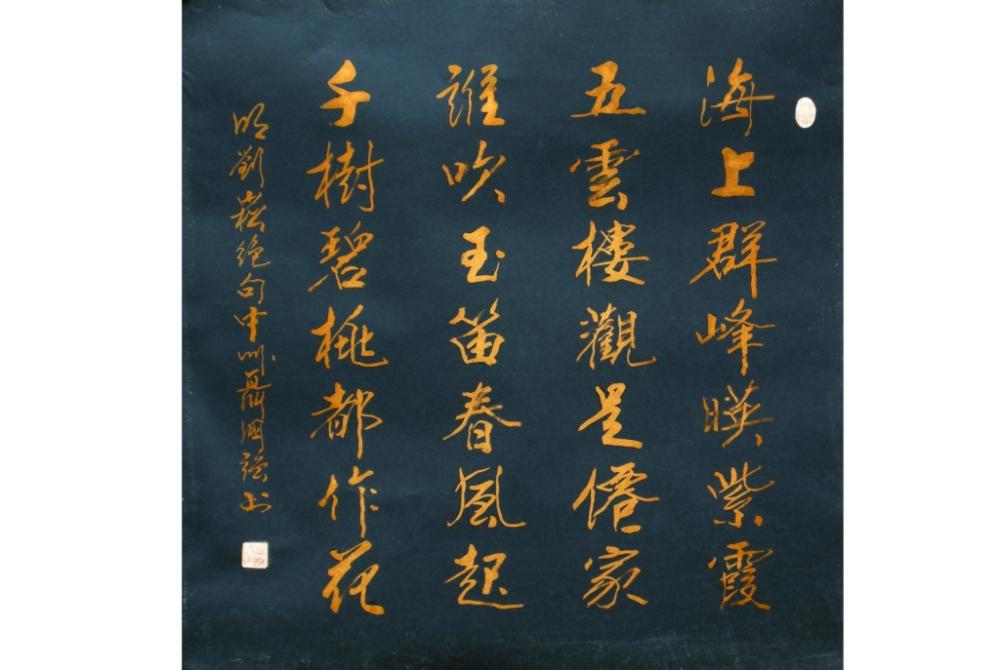 海上群峰暎紫霞
五雲樓觀是僊家
誰吹玉笛春風起
千樹碧桃都作花
明劉崧絕句中州聶國強书